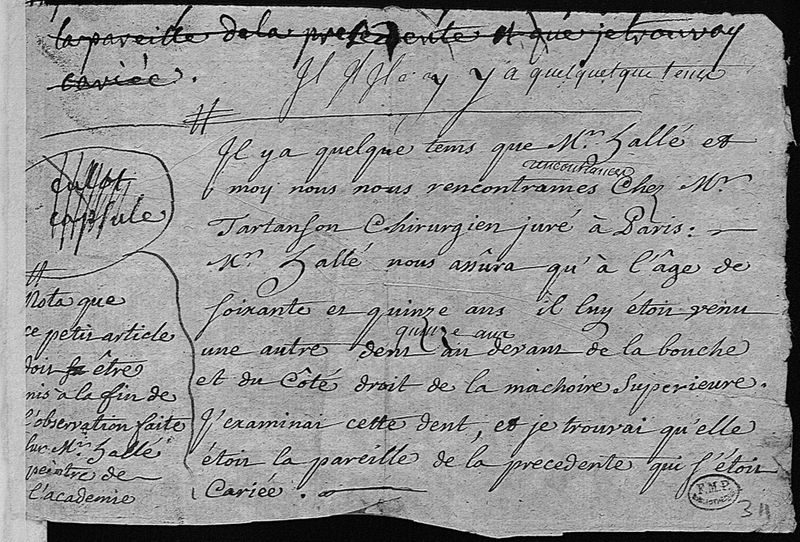 la pareille de la precedente et que je trouvay
cariée.
Il Il Il a ay y a quelquelque tems
Il y a quelque tems que Mr. Hallé et
rencontrames
moy nous nous rencontrames Chez Mr.
Tartanson Chirurgien juré à Paris:
Mr. Hallé nous assûra qu'à l'âge de
soixante et quinze ans il luy étoit venu
quinze ans
une autre dent au devant de la bouche
et du Côté droit de la machoire Superieure.
J'examinai cette dent, et je trouvai qu'elle
étoit la pareille de la precedente qui s'étoit
Cariée.
culot
capsule
Nota que
ce petit article
doit être
mis a la fin de
l'observation faite
sur Mr. Hallé
peintre de
l'academie
F.M.P.